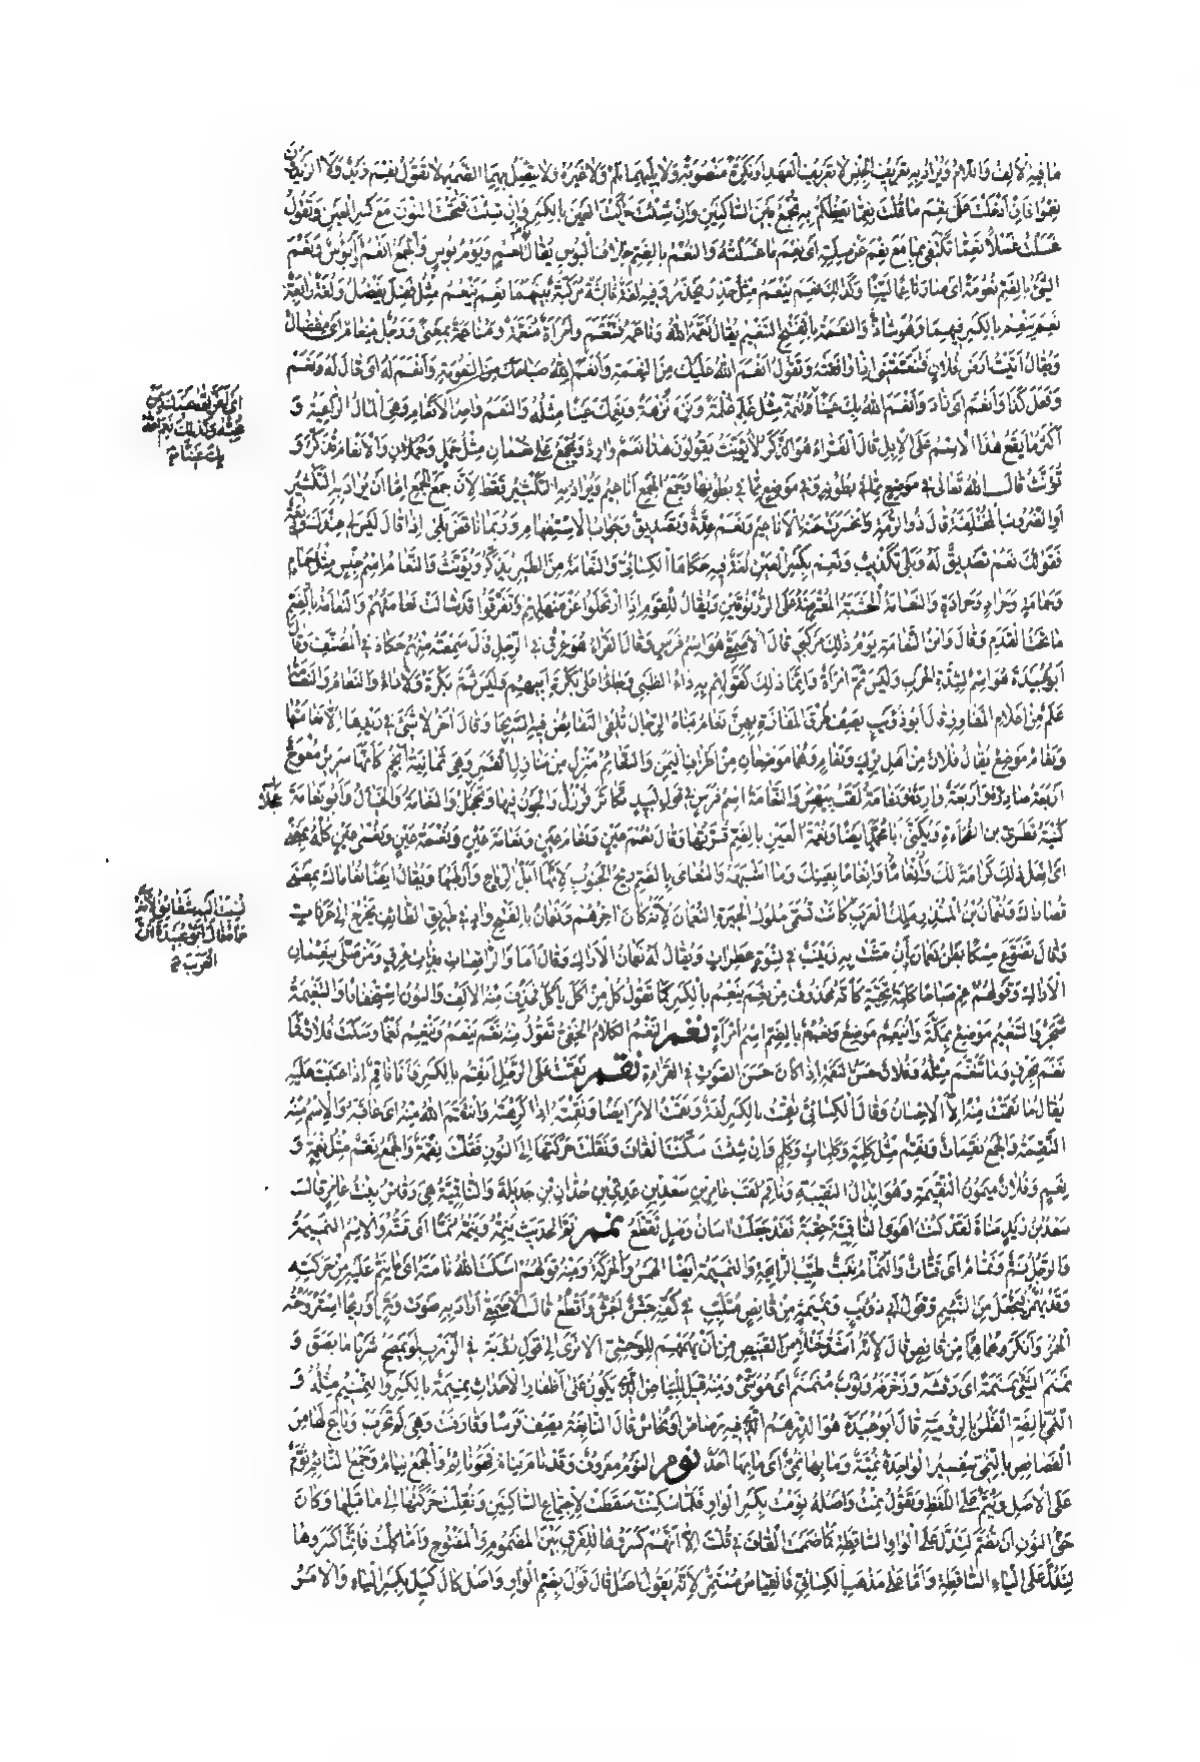 ما فيه الألف واللام ويراد به تعريف الجنس لا تعريف العهد أو نكرة منصوبة ولا يليهما علم ولا غيره ولا يتصل بهما الضمير لا تقول نعم زيد ولا الزيدون
نعموا فإن أدخلت على نعم ما قلت نعما يعظكم به تجمع بين الساكنين وإن شئت حركت العين بالكسر وإن شئت فتحت النون مع كسر العين وتقول
غسلت غسلا نعما تكتفي بما مع نعم عن صلته أي نعم ما غسلته والنعم بالضم خلاف البؤس يقال يوم نعم ويوم بؤس والجمع أنعم وأبؤس ونعم
الشيء بالضم نعومة أي صار ناعما لينا وكذلك نعم ينعم مثل حذر يحذر وفيه لغة ثالثة مركبة بينهما نعم ينعم مثل فضل يفضل ولغة رابعة
نعم ينعم بالكسر فيهما وهو شاذ والنعمة بالفتح التنعيم يقال نعمه الله وناعمه فتنعم وامرأة منعمة ومناعمة بمعنى ورجل منعام أي مفضال
ويقال أتيت أرض فلان فتنعمتني إذا وافقته وتقول أنعم الله عليك من النعمة وأنعم الله صباحك من النعومة وأنعم له أي قال له نعم
وفعل كذا وأنعم أي زاد وأنعم الله بك عينا ونعمة مثل غلم غلمة ونزه نزهة ونعمك عينا مثله والنعم واحد الأنعام وهي المال الراعية و
أكثر ما يقع هذا الاسم على الإبل قال الفراء هو ذكر لا يؤنث يقولون هذا نعم وارد ويجمع على نعمان مثل حمل وحملان والأنعام تذكر و
تؤنث قال الله تعالى في موضع مما في بطونه وفي موضع مما في بطونها وجمع الجمع أناعيم ويراد به التكثير فقط لأن جمع الجمع إما أن يراد به التكثير
أو الضروب المختلفة قال ذو الرمة وانحسرت عنه الأناعيم ونعم عدة وتصديق وجواب الاستفهام وربما ناقض بلى إذا قال ليس لي عندك وديعة
فقولك نعم تصديق له وبلى تكذيب ونعم بكسر العين لغة فيه حكاها الكسائي والنعامة من الطير يذكر ويؤنث والنعام اسم جنس مثل حمام
وحمامة وجراد وجرادة والنعامة الخشبة المعترضة على الزرنوقين ويقال للقوم إذا ارتحلوا عن منهلهم وتفرقوا قد شالت نعامتهم والنعامة بالضم
ما تحت القدم وقال وابن النعامة يوم ذلك مركبي قال الأصمعي هو اسم فرس وقال الفراء هو عرق في الرجل قال سمعته منهم حكاه في المصنف وقال
أبو عبيدة هو اسم لشدة الحرب وليس ثم امرأة وإنما ذلك كقولهم به داء الظبي وجاؤا على بكرة أبيهم وليس ثمة بكرة ولا داء والنعام والنعامة
علم من أعلام المفاوز قال أبو ذؤيب يصف طرق المفازة بهن نعام بناه الرجال تلقي النفائض فيه السريحا وقال آخر لا شيء في ريدها إلا نعامتها
ونعام موضع يقال فلان من أهل برك ونعام وهما موضعان من أطراف اليمن والنعائم منزل من منازل القمر وهي ثمانية أنجم كأنها سرير معوج
أربعة صادرة وأربعة واردة ونعامة لقب بيهس والنعامة اسم فرس في قول لبيد تكاثر قرزل والجون فيها وتحجل والنعامة والخبال وأبو نعامة
كنية قطري بن الفجاءة ويكنى أبا محمد أيضا ونعمة العين بالضم قرتها وقال نعم عين ونعام عين ونعامة عين ونعمة عين ونعمى عين كله بمعنى
أي أفعل ذلك كرامة لك وإنعاما وإنعاما بعينك وما أشبهه والنعامى بالضم ريح الجنوب لأنها أبل الرياح وأرطبها ويقال أيضا نعاماك بمعنى
قصاراك ونعمان بن المنذر ملك العرب كانت تسمى ملوك الحيرة النعمان لأنه كان آخرهم ونعمان بالفتح واد في طريق الطائف يخرج إلى عرفات
وقال تضوع مسكا بطن نعمان أن مشت به زينب في نسوة عطرات ويقال له نعمان الأراك وقال أما والراقصات بذات عرق ومن صلى بنعمان
الأراك وقولهم عم صباحا كلمة تحية كأنه محذوف من نعم ينعم بالكسر كما تقول كل من أكل يأكل فحذف منه الألف والنون استخفافا والنعيمة
شجر والتنعيم موضع بمكة وأنيعم موضع ونعم بالضم اسم امرأة نغم النغم الكلام الخفي تقول منه نغم ينغم وينغم نغما وسكت فلان فما
نغم بحرف وما تنغم مثله وفلان حسن النغمة إذا كان حسن الصوت في القراءة نقم نقمت على الرجل أنقم بالكسر فأنا ناقم إذا عتبت عليه
يقال ما نقمت منه إلا الإحسان وقال الكسائي نقمت بالكسر لغة ونقمت الأمر أيضا ونقمته إذا كرهته وانتقم الله منه أي عاقبه والاسم منه
النقمة والجمع نقمات ونقم مثل كلمة وكلمات وكلم وإن شئت سكنت القاف ونقلت حركتها إلى النون فقلت نقمة والجمع نقم مثل نعمة و
نعم وفلان ميمون النقيمة وهو إبدال النقيبة وناقم لقب عامر بن سعد بن عدي بن جدان بن جديلة والناقمية هي رقاش بنت عامر قال
سعد بن زيد مناة لقد كنت أهوى الناقمية حقبة فقد جعلت آسان وصل تقطع نمم نم الحديث ينمه وينمه نما أي قته والاسم النميمة
والرجل نم ونمام أي قتات والنمام نبت طيب الرائحة والنميمة أيضا الهمس والحركة ومنه قولهم أسكت الله نامته أي ما ينم عليه من حركته
وقد يهمز فيجعل من النئيم وقول أبي ذؤيب ونميمة من قانص متلبب في كفه جشء أجش وأقطع قال الأصمعي أراد به صوت وتر أو ريحا استروحته
الحمر وأنكره هماهما من قانص قال لأنه أشد ختلا من القنيص من أن يهمهم للوحش ألا ترى إلى قول رؤبة في الزرب لو يمضغ شريا ما بصق و
نمنم الشيء نمنمة أي رقشه وزخرفه وثوب منمنم أي موشى ومنه قيل للبياض الذي يكون على أظفار الأحداث نمنمة بالكسر والنمنم مثله و
النمي بالضم الفلس بالرومية قال أبو عبيدة هو الدرهم الذي فيه رصاص أو نحاس قال النابغة يصف فرسا وقارفت وهي لم تجرب وباع لها من
الفصافص بالنمي سفسير الواحدة نمية وما بها نمي أي ما بها أحد نوم النوم معروف وقد نام ينام فهو نائم والجمع نيام وجمع النائم نوم
على الأصل ونيم على اللفظ وتقول نمت وأصله نومت بكسر الواو فلما سكنت سقطت لاجتماع الساكنين ونقلت حركتها إلى ما قبلها وكان
حق النون أن تضم لتدل على الواو الساقطة كما ضممت القاف في قلت إلا أنهم كسروها للفرق بين المضموم والمفتوح وأما كلت فإنما كسروها
لتدل على الياء الساقطة وأما على مذهب الكسائي فالقياس مستمر لأنه يقول أصل قال قول بضم الواو وأصل كال كيل بكسر الياء والأمر